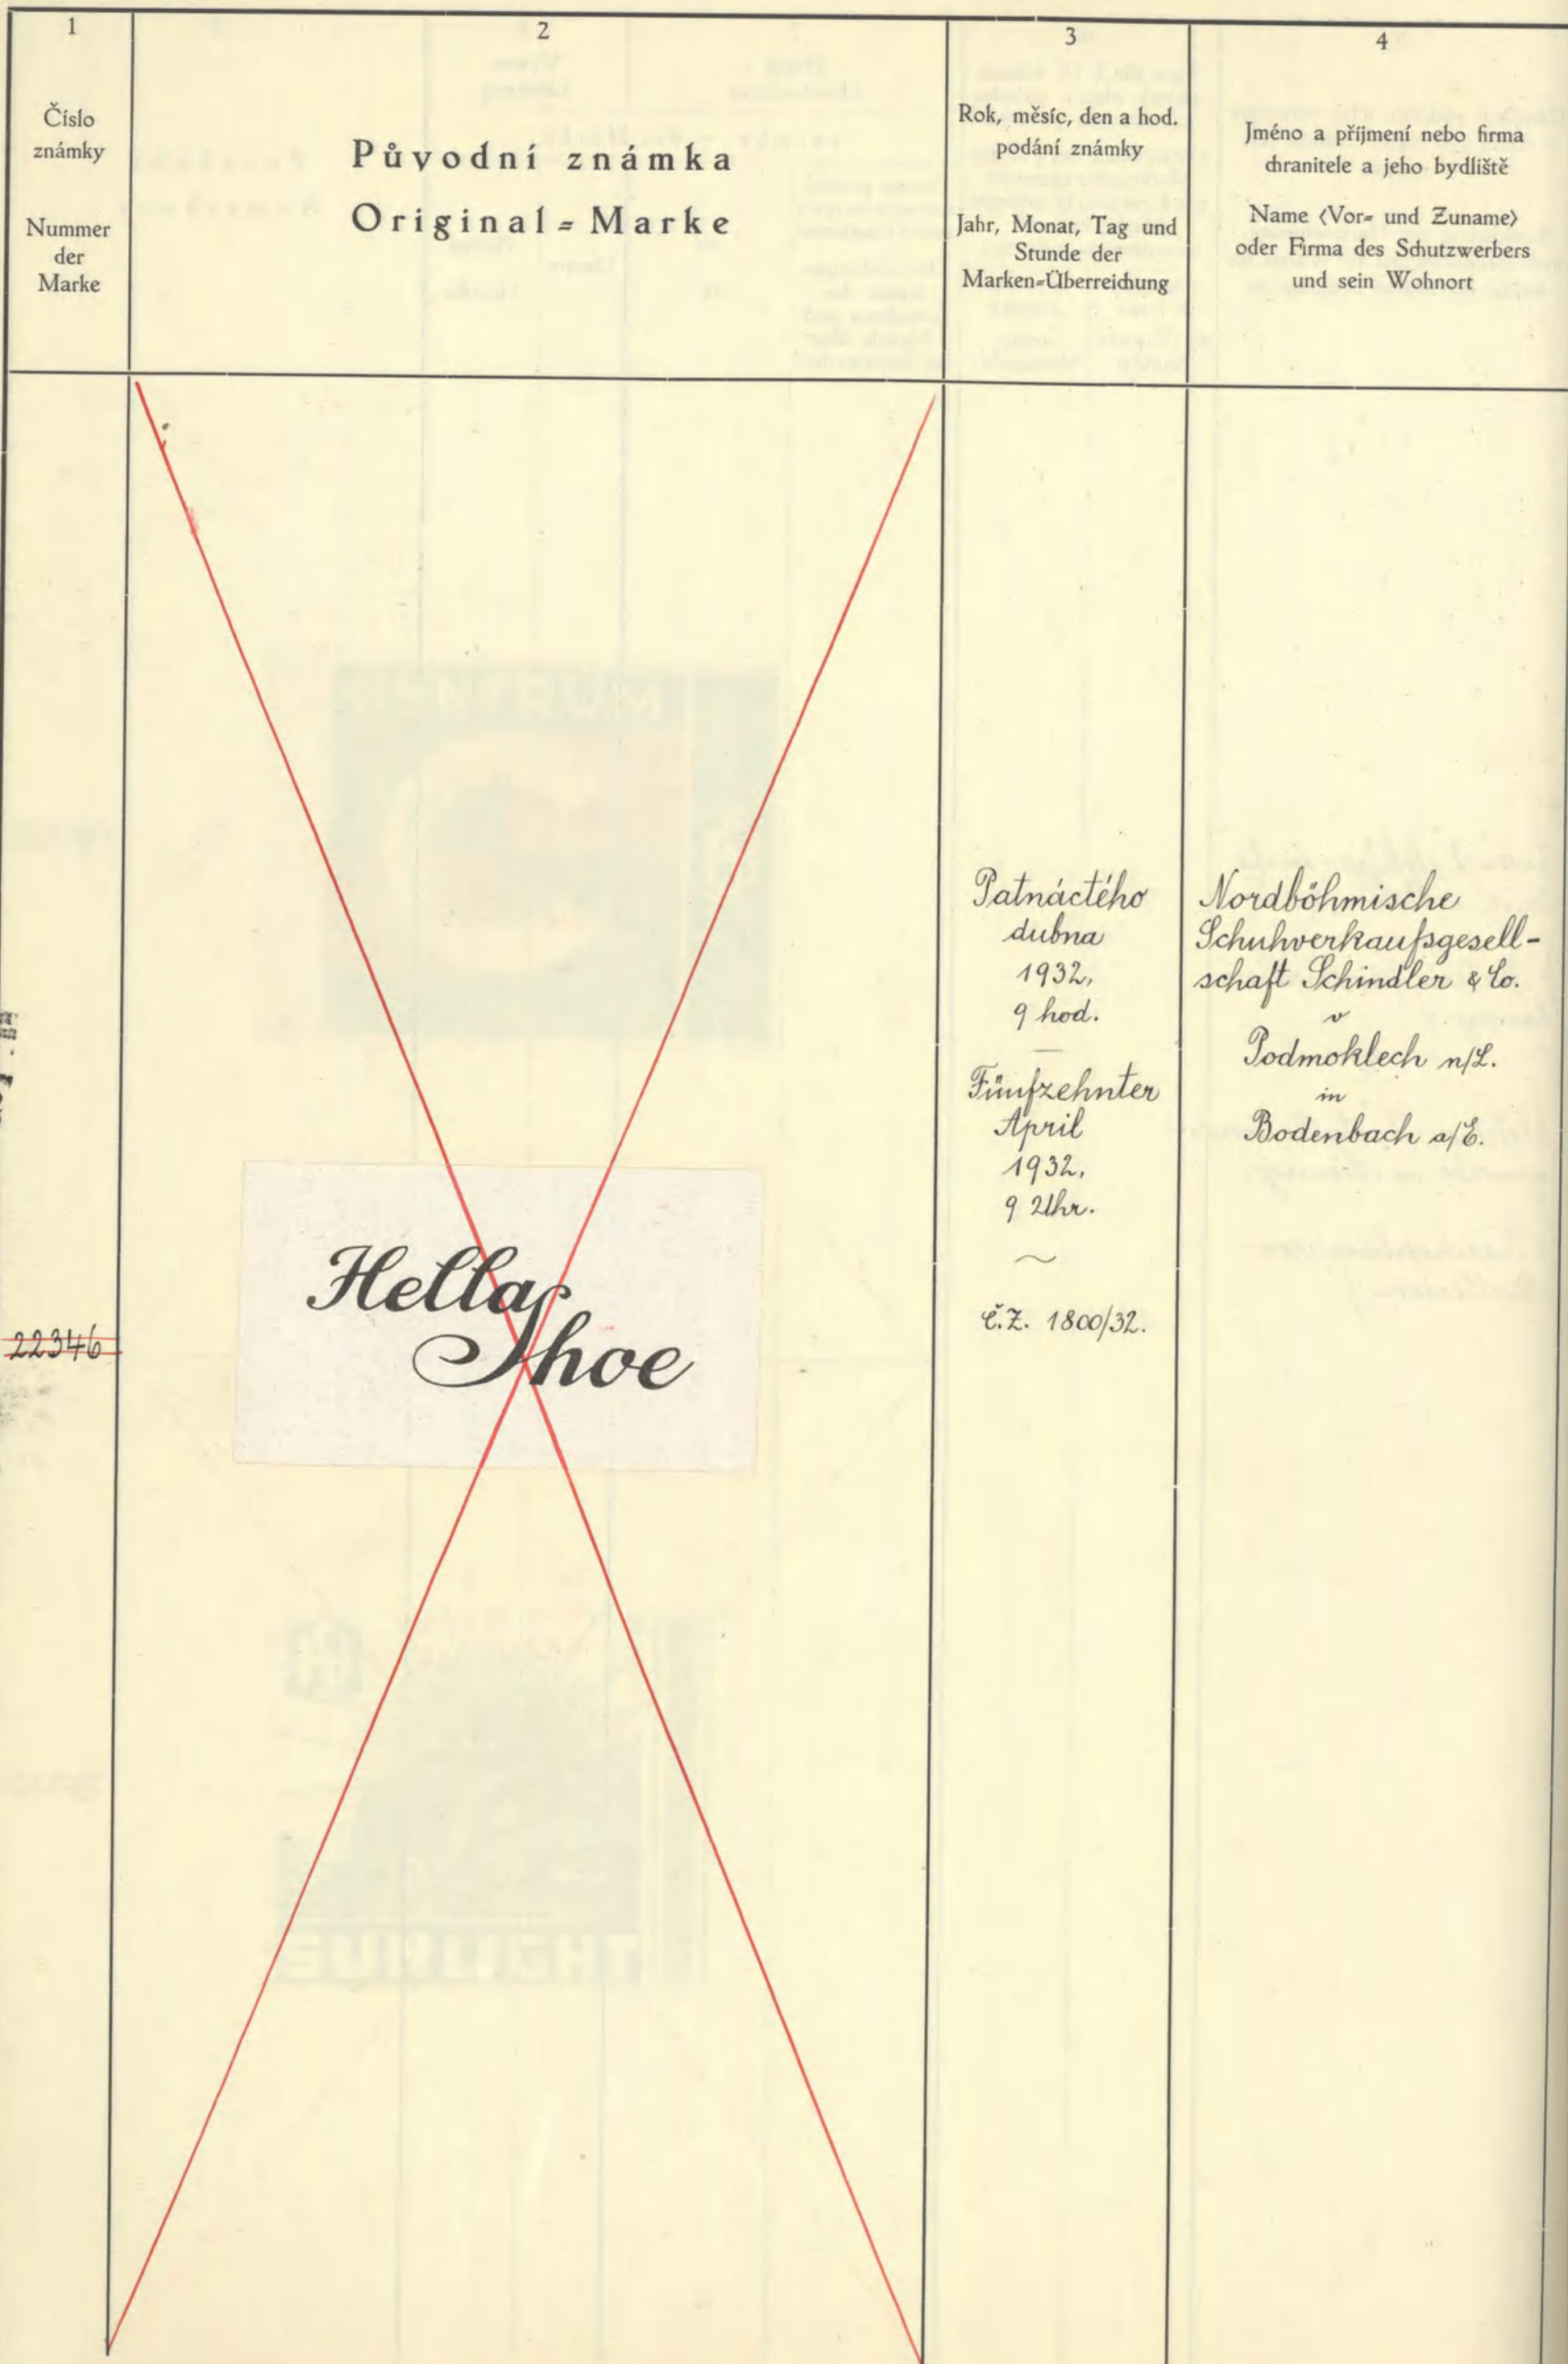 1
Číslo
známky
Nummer
der
Marke
2
Původní známka
Original=Marke
3
Rok, měsíc, den a hod.
podání známky
Jahr, Monat, Tag und
Stunde der
Marken=Überreichung
4
Jméno a příjmení nebo firma
chranitele a jeho bydliště
Name (Vor= und Zuname)
oder Firma des Schutzwerbers
und sein Wohnort
22346
Hellas
Shoe
Patnáctého
dubna
1932,
9 hod.
Fünfzehnter
April
1932,
9 Uhr.
č.Z. 1800/32.
Nordböhmische
Schuhverkaufsgesell-
schaft Schindler & Co.
v
Podmoklech n/L.
in
Bodenbach a/E.